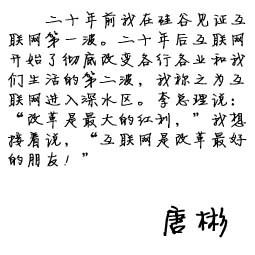 二十年前我在硅谷见证互
联网第一波。二十年后互联网
开始了彻底改变各行各业和我
们生活的第二波，我称之为互
联网进入深水区。李总理说：
“改革是最大的红利，”我想
接着说，“互联网是改革最好
的朋友！”
唐彬